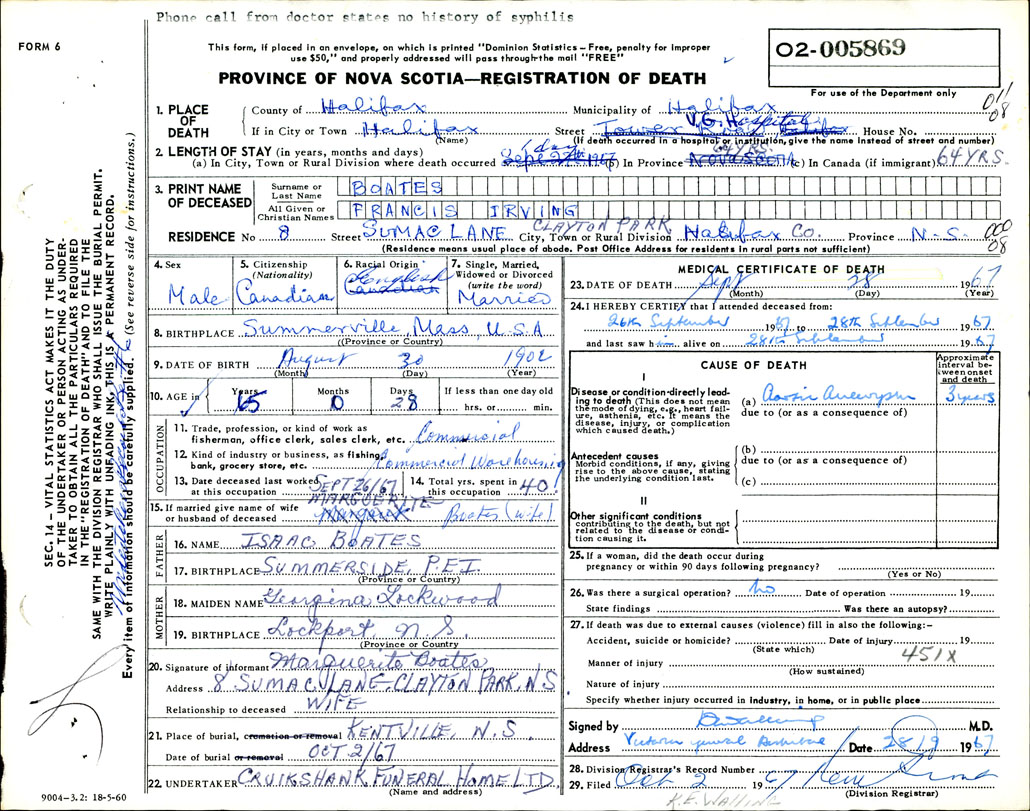 Phone call from doctor states no history of syphilis
FORM 6
This form, if placed in an envelope, on which is printed "Dominion Statistics – Free, penalty for improper
use $50," and properly addressed will pass through the mail "FREE"
02-005869
For use of the Department only
PROVINCE OF NOVA SCOTIA—REGISTRATION OF DEATH
011
08
1. PLACE OF DEATH
County of Halifax Municipality of Halifax
V.G. Hospital
If in City or Town Halifax Street Tower Road Halifax House No.
(Name) (If death occurred in a hospital or institution, give the name instead of street and number)
2. LENGTH OF STAY (in years, months and days) 1 day 64 YRS.
(a) In City, Town or Rural Division where death occurred Sept 27th 1967 (b) In Province NOVA SCOTIA (c) In Canada (if immigrant) 64 YRS.
3. PRINT NAME OF DECEASED
Surname or Last Name BOATES
All Given or Christian Names FRANCIS IRVING
CLAYTON PARK
RESIDENCE No 8 Street SUMAC LANE City, Town or Rural Division Halifax Co. Province N.S.
000
08
(Residence means usual place of abode. Post Office Address for residents in rural parts not sufficient)
4. Sex Male
5. Citizenship (Nationality) Canadian
6. Racial Origin English Canadian
7. Single, Married, Widowed or Divorced (write the word) Married
8. BIRTHPLACE Summerville, Mass, U.S.A
(Province or Country)
9. DATE OF BIRTH August 30 1902
(Month) (Day) (Year)
10. AGE in Years 65 Months 0 Days 28 If less than one day old
hrs. or min.
OCCUPATION
11. Trade, profession, or kind of work as
fisherman, office clerk, sales clerk, etc. Commercial
12. Kind of industry or business, as fishing,
bank, grocery store, etc. Commercial Warehousing
13. Date deceased last worked at this occupation SEPT 26/67
14. Total yrs. spent in this occupation 40
MARGUERITE
15. If married give name of wife
or husband of deceased Margaret Boates (wife)
FATHER
16. NAME ISAAC BOATES
17. BIRTHPLACE SUMMERSIDE, P.E.I.
(Province or Country)
MOTHER
18. MAIDEN NAME Georgina Lockwood
19. BIRTHPLACE Lockport, N S.
(Province or Country)
20. Signature of informant Marguerite Boates
Address 8 SUMAC LANE, CLAYTON PARK, N S
Relationship to deceased WIFE
21. Place of burial, cremation or removal KENTVILLE, N.S.
Date of burial or removal OCT 2/67
22. UNDERTAKER CRUIKSHANK FUNERAL HOME LTD.
(Name and address)
MEDICAL CERTIFICATE OF DEATH
23. DATE OF DEATH Sept 28 1967
(Month) (Day) (Year)
24. I HEREBY CERTIFY that I attended deceased from:
26th September 1967 to 28th September 1967
and last saw him alive on 28th September 1967
CAUSE OF DEATH
Approximate interval between onset and death
I
Disease or condition directly leading to death (This does not mean the mode of dying, e.g., heart failure, asthenia, etc. It means the disease, injury, or complication which caused death.)
(a) Aortic Aneurysm 3 years
due to (or as a consequence of)
Antecedent causes
Morbid conditions, if any, giving rise to the above cause, stating the underlying condition last.
(b)
due to (or as a consequence of)
(c)
II
Other significant conditions
contributing to the death, but not related to the disease or condition causing it.
25. If a woman, did the death occur during
pregnancy or within 90 days following pregnancy?
(Yes or No)
26. Was there a surgical operation? No Date of operation 19
State findings Was there an autopsy?
27. If death was due to external causes (violence) fill in also the following:–
Accident, suicide or homicide? Date of injury 19
(State which)
451X
Manner of injury
(How sustained)
Nature of injury
Specify whether injury occurred in industry, in home, or in public place
Signed by M.D.
Address Victoria General Date 28/9 1967
28. Division Registrar's Record Number
29. Filed Oct 2 1967
(Division Registrar)
K.E. WALLING
SEC. 14 – VITAL STATISTICS ACT MAKES IT THE DUTY
OF THE UNDERTAKER OR PERSON ACTING AS UNDER-
TAKER TO OBTAIN ALL THE PARTICULARS REQUIRED
IN THE "REGISTRATION OF DEATH" AND TO FILE THE
SAME WITH THE DIVISION REGISTRAR WHO SHALL ISSUE THE BURIAL PERMIT.
WRITE PLAINLY WITH UNFADING INK, THIS IS A PERMANENT RECORD.
Every item of information should be carefully supplied. (See reverse side for instructions.)
9004–3.2: 18-5-60